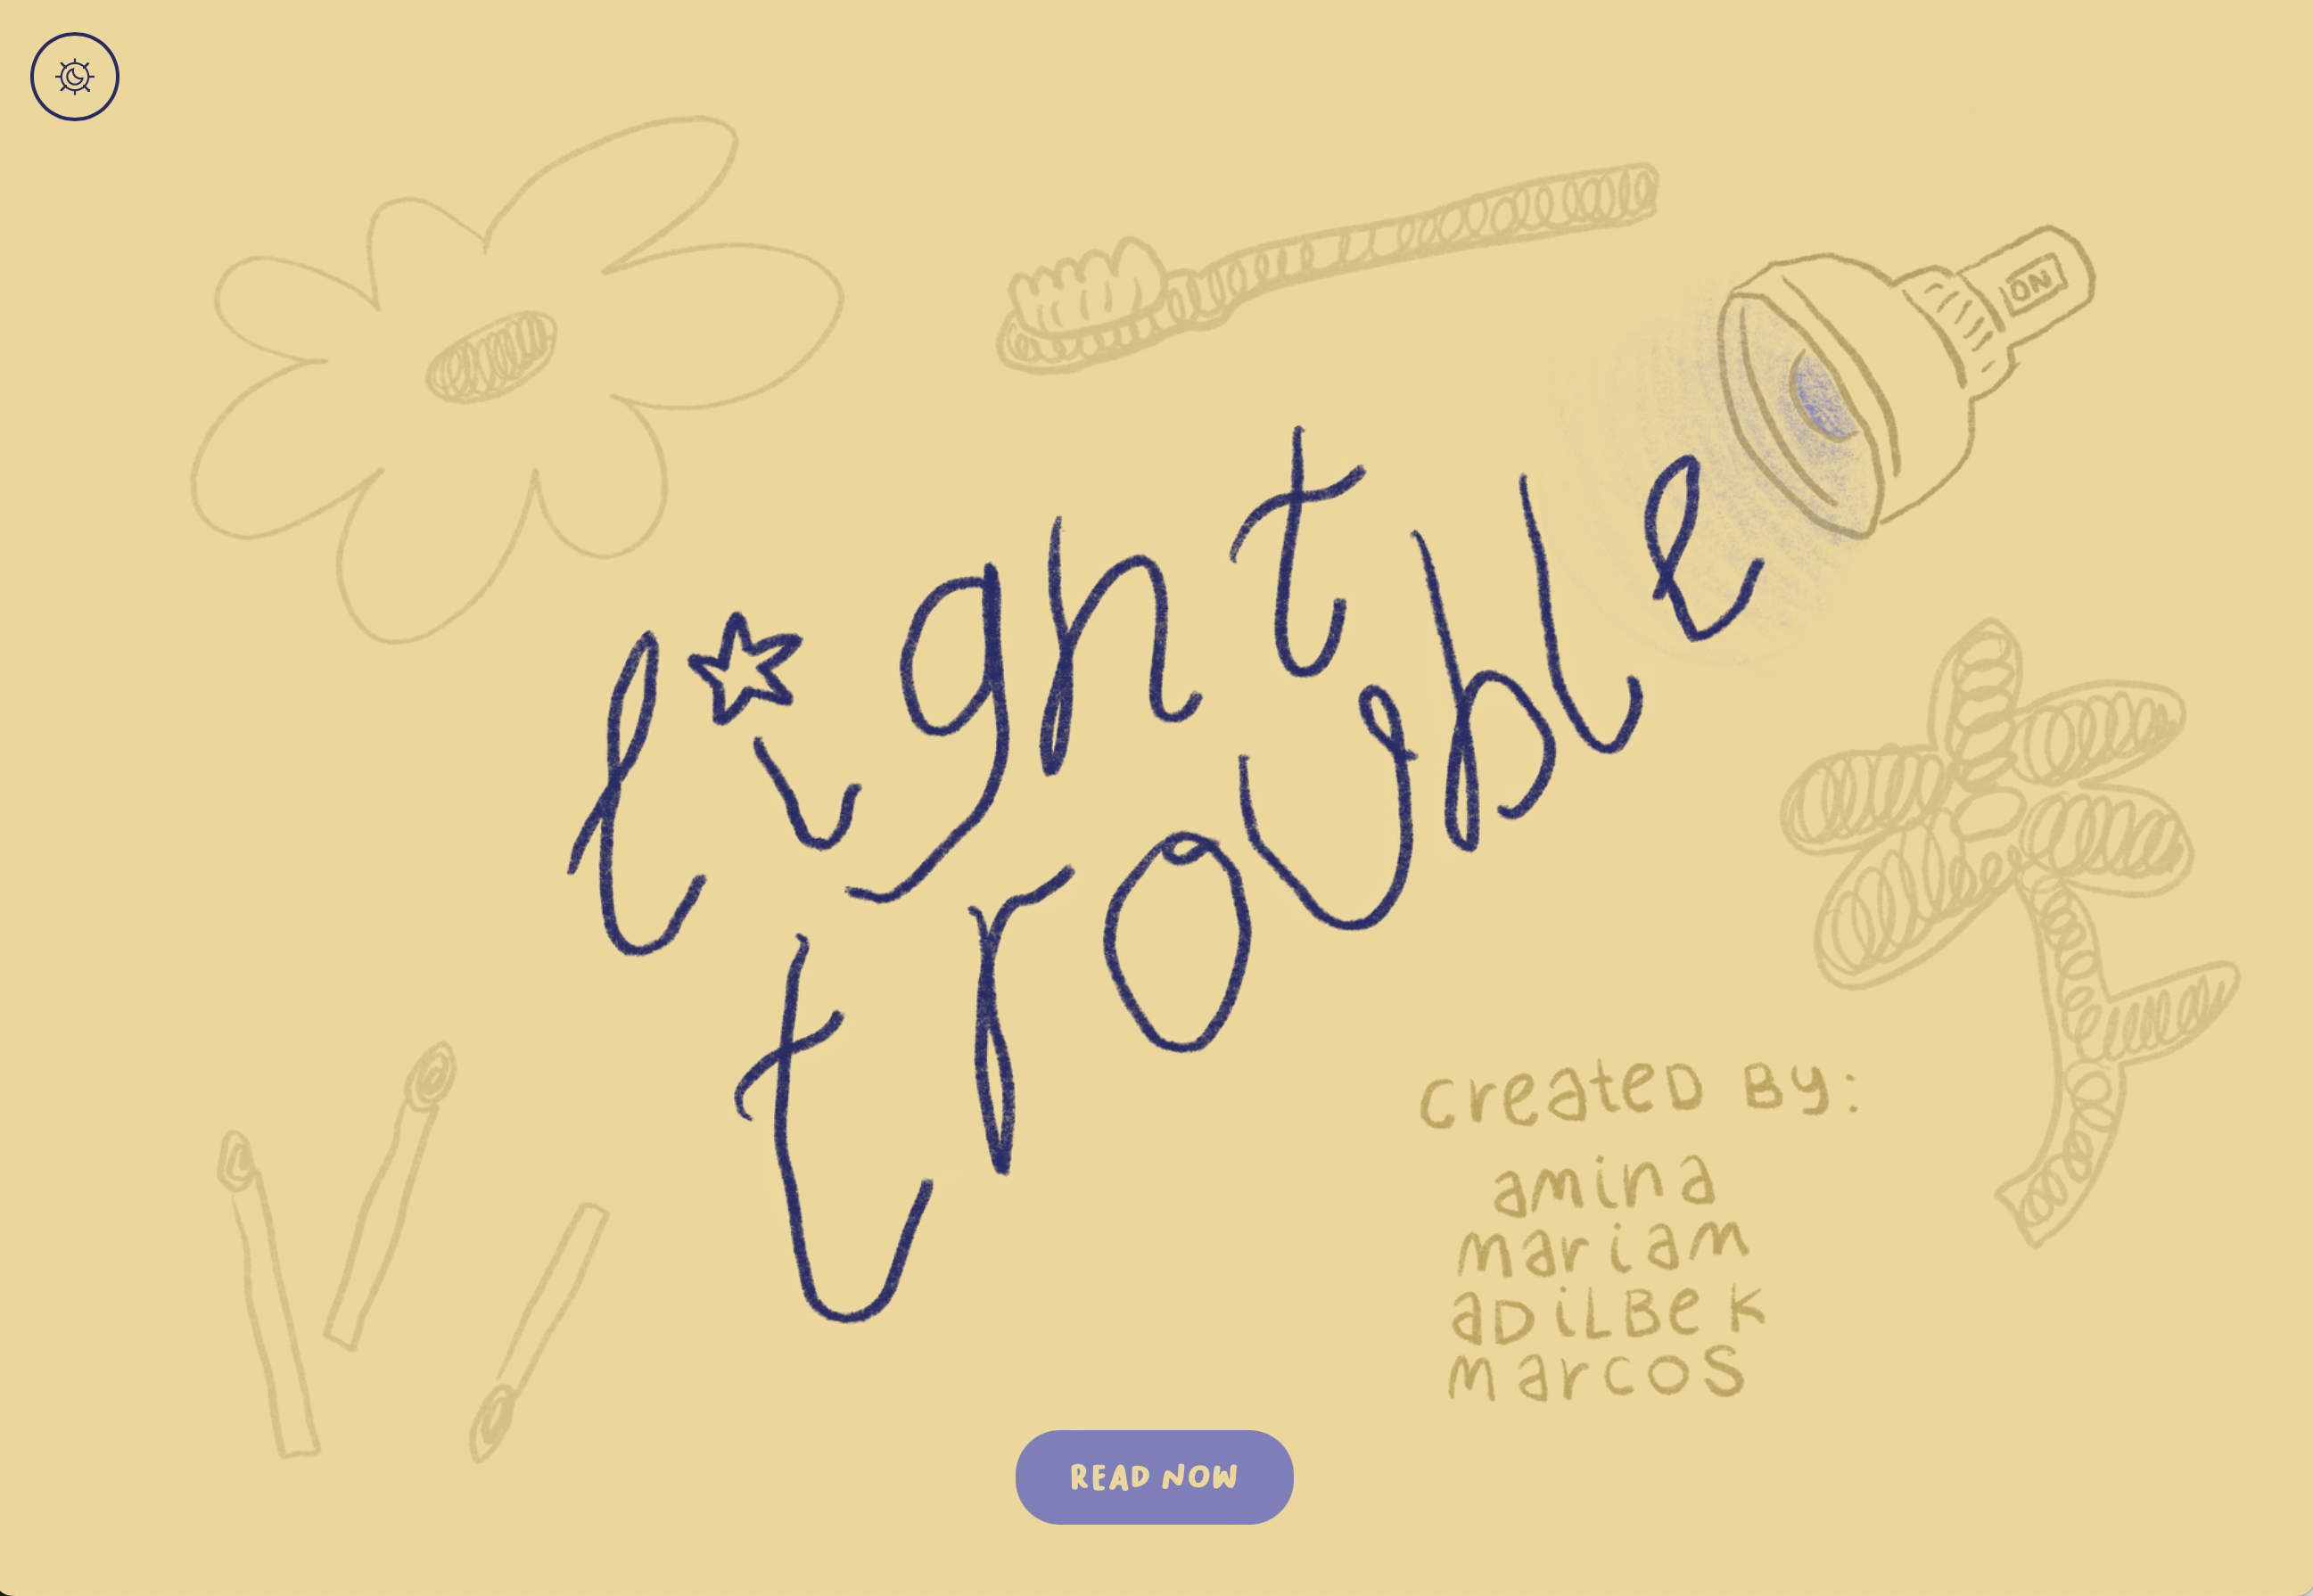 light
trouble
ON
created by:
amina
mariam
adilbek
marcos
READ NOW